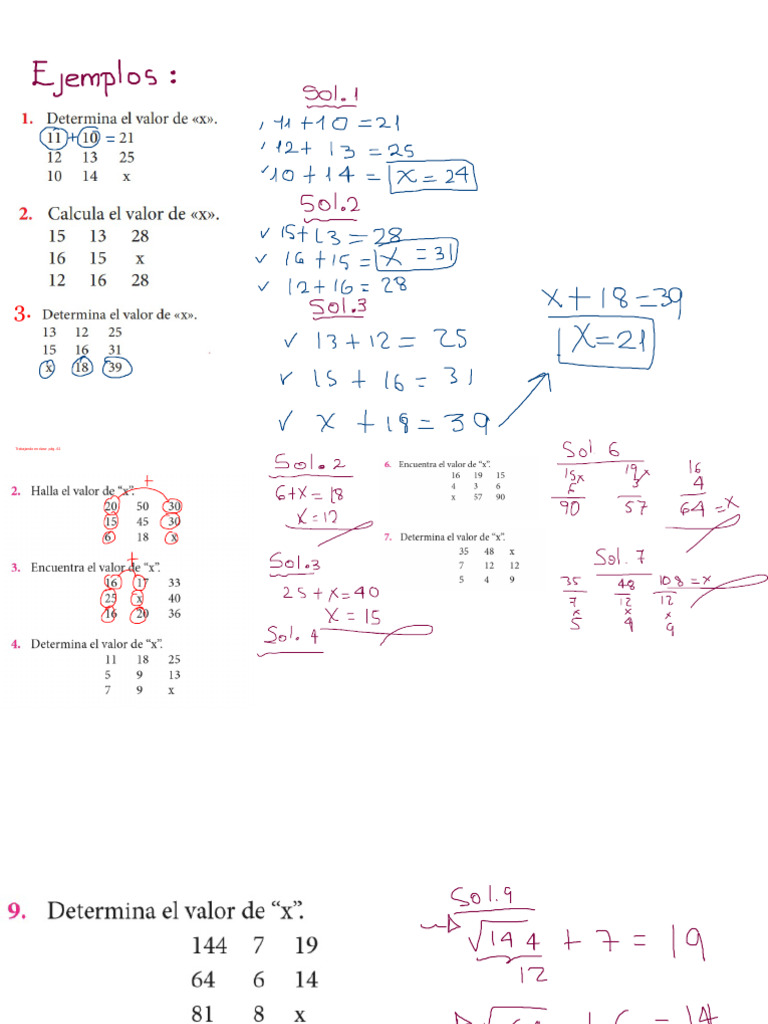 Ejemplos :
1. Determina el valor de «x».
11 + 10 = 21
12 13 25
10 14 x
Sol.1
11 + 10 = 21
12 + 13 = 25
✓ 10 + 14 = x = 24
2. Calcula el valor de «x».
15 13 28
16 15 x
12 16 28
Sol.2
✓ 15 + 13 = 28
✓ 16 + 15 = x = 31
✓ 12 + 16 = 28
3. Determina el valor de «x».
13 12 25
15 16 31
x 18 39
Sol.3
✓ 13 + 12 = 25
✓ 15 + 16 = 31
✓ x + 18 = 39
x + 18 = 39
x = 21
2. Halla el valor de “x”.
+
20 50 30
15 45 30
6 18 x
Sol. 2
6 + x = 18
x = 12
3. Encuentra el valor de “x”.
+
16 17 33
25 x 40
16 20 36
Sol.3
25 + x = 40
x = 15
4. Determina el valor de “x”.
11 18 25
5 9 13
7 9 x
Sol. 4
6. Encuentra el valor de “x”.
16 19 15
4 3 6
x 57 90
Sol 6
15x 19x 16
6 3 4
90 57 64 = x
7. Determina el valor de “x”.
35 48 x
7 12 12
5 4 9
Sol. 7
35 48 108 = x
7 12 12
x x x
5 4 9
9. Determina el valor de “x”.
144 7 19
64 6 14
81 8 x
Sol.9
√144 + 7 = 19
12